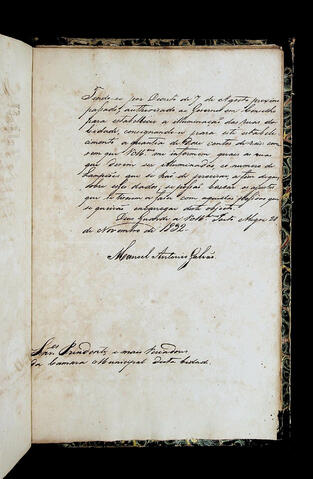 Tendo-se por Decreto de 7 de Agosto proximo
passado authorisado ao Governo em Conselho
para estabelecer a illuminação das ruas da
Cidade, consignando-se para este estabele-
cimento a quantia de
que VSas. me informem quaes as ruas
que devem ser illuminadas, e o numero de
Lampiões que se hão de precisar a fim de que
sobre estes dados se possão bazear os ajustes
que se tenhão a fazer com aquellas pessoas que
se queirão encarregar deste objecto.
Deos guarde a VSas. Porto Alegre 20
de Novembro de 1832
Manoel Antonio Galvão
Snrs. Prezidente, e mais Vereadores
da Camara Municipal desta Cidade